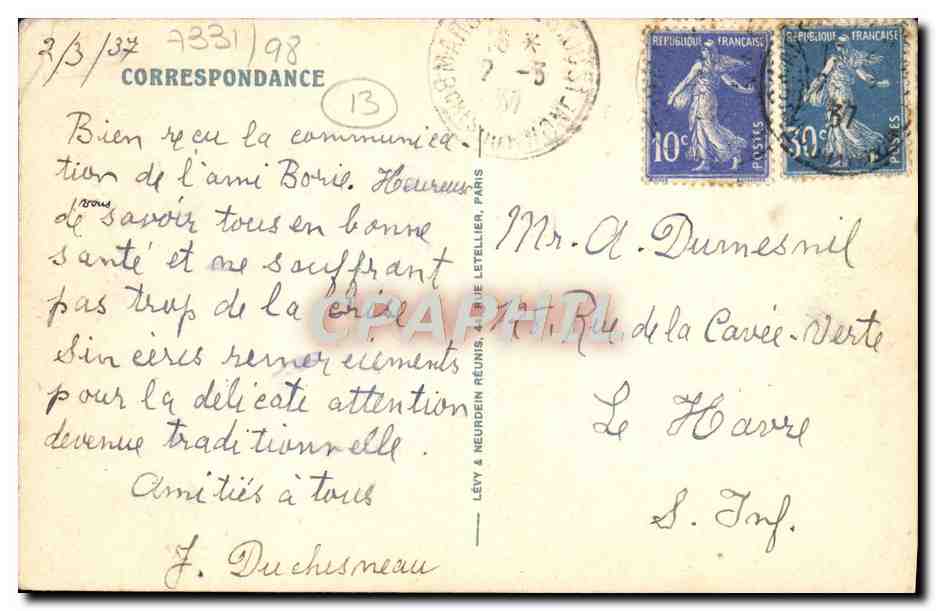 2/3/37
A331/98
CORRESPONDANCE
13
RÉPUBLIQUE FRANÇAISE
10c
POSTES
RÉPUBLIQUE FRANÇAISE
30c
POSTES
Bien reçu la communica-
tion de l'ami Borie. Heureux
de vous savoir tous en bonne
santé et ne souffrant
pas trop de la crise
Sincères remerciements
pour la délicate attention
devenue traditionnelle.
Amitiés à tous
J. Duchesneau
LÉVY & NEURDEIN RÉUNIS, 44, RUE LETELLIER, PARIS
Mr. A. Dumesnil
Rue de la Cavée-Verte
Le Havre
S. Inf.
CPAPHIL